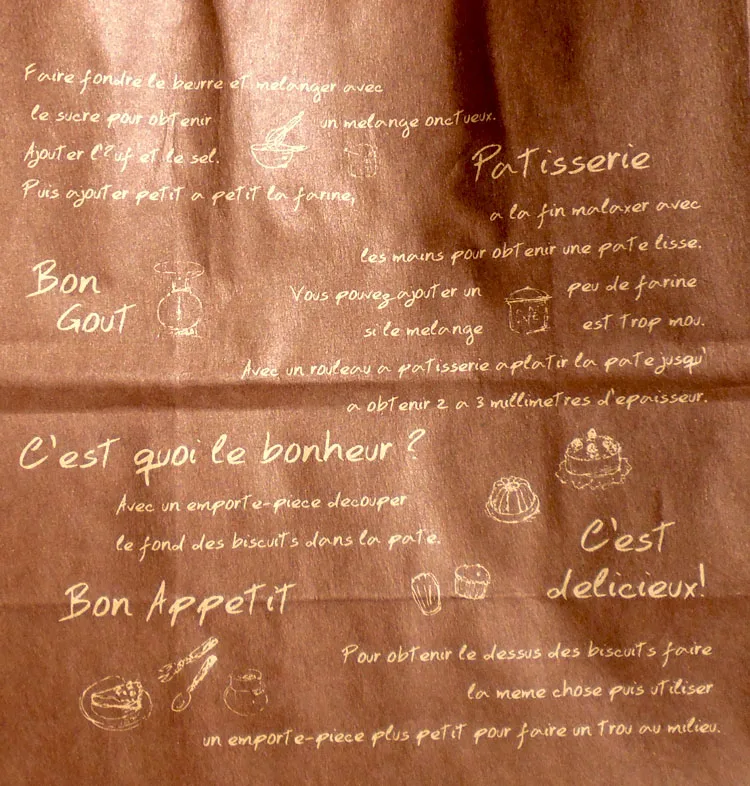 Faire fondre le beurre et melanger avec
le sucre pour obtenir un melange onctueux.
Ajouter l'?uf et le sel.
Puis ajouter petit a petit la farine,
Patisserie
a la fin malaxer avec
les mains pour obtenir une pate lisse.
Bon
Gout
Vous pouvez ajouter un peu de farine
si le melange est trop mou.
Avec un rouleau a patisserie aplatir la pate jusqu'
a obtenir 2 a 3 millimetres d'epaisseur.
C'est quoi le bonheur ?
Avec un emporte-piece decouper
le fond des biscuits dans la pate.
C'est
delicieux!
Bon Appetit
Pour obtenir le dessus des biscuits faire
la meme chose puis utiliser
un emporte-piece plus petit pour faire un trou au milieu.